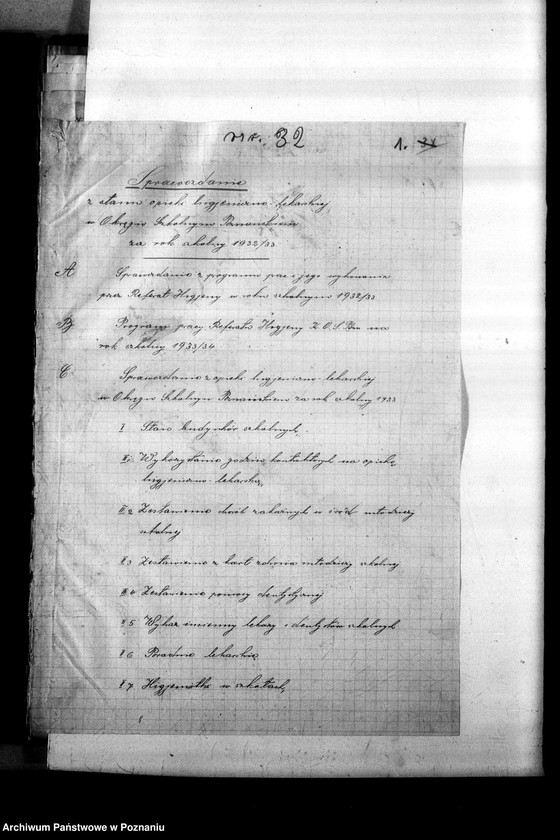 Nr. 32
1. 31
Sprawozdanie
z stanu opieki higjeniczno-lekarskiej
w Okręgu Szkolnym Poznańskim
za rok szkolny 1932/33
A Sprawozdanie z programu prac i jego wykonania
przez Referat Higjeny w roku szkolnym 1932/33
B Program pracy Referatu Higjeny K.O.S. Pozn. na
rok szkolny 1933/34
C Sprawozdanie z opieki higjeniczno-lekarskiej
w Okręgu Szkolnym Poznańskim za rok szkolny 1933
I Stan budynków szkolnych.
II 1 Wykorzystanie godzin kontraktowych na opiekę
higjeniczno-lekarską
II 2 Zestawienie chorób zakaźnych w śród młodzieży
szkolnej
II 3 Zestawienie z kart zdrowia młodzieży szkolnej
II 4 Zestawienie pomocy dentystycznej
II 5 Wykaz imienny lekarzy i dentystów szkolnych
II 6 Poradnie lekarskie
II 7 Higjenistki w szkołach
Archiwum Państwowe w Poznaniu